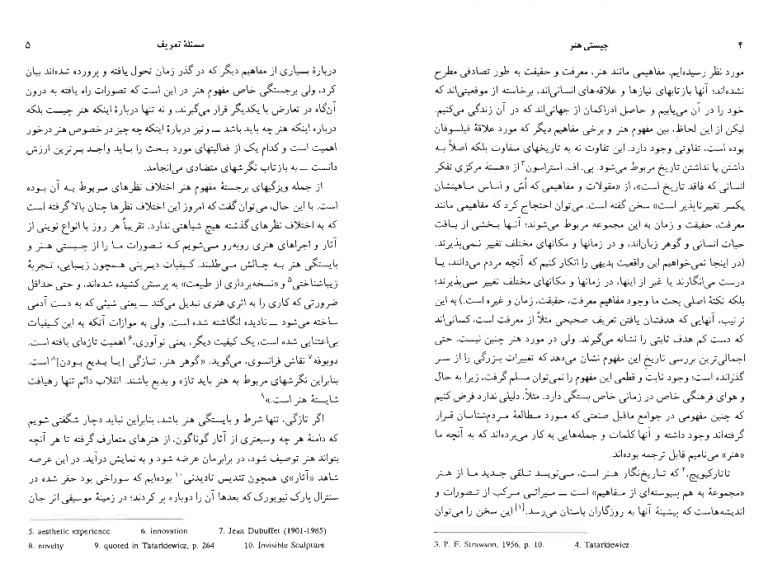 ۴
چیستی هنر
مورد نظر رسیده‌ایم. مفاهیمی مانند هنر، معرفت و حقیقت به طور تصادفی مطرح
نشده‌اند؛ آنها بازتابهای نیازها و علاقه‌های انسانی‌اند، برخاسته از موقعیتی‌اند که
خود را در آن می‌یابیم و حاصل ادراکمان از جهانی‌اند که در آن زندگی می‌کنیم.
لیکن از این لحاظ، بین مفهوم هنر و برخی مفاهیم دیگر که مورد علاقهٔ فیلسوفان
بوده است، تفاوتی وجود دارد. این تفاوت نه به تاریخهای متفاوت بلکه اصلاً به
داشتن یا نداشتن تاریخ مربوط می‌شود. پی. اف. استراسون۳ از «هستهٔ مرکزی تفکر
انسانی که فاقد تاریخ است»، از «مقولات و مفاهیمی که اُسّ و اساس ماهیتشان
یکسر تغییرناپذیر است» سخن گفته است. می‌توان احتجاج کرد که مفاهیمی مانند
معرفت، حقیقت و زمان به این مجموعه مربوط می‌شوند؛ آنها بخشی از بافت
حیات انسانی و گوهر زبان‌اند، و در زمانها و مکانهای مختلف تغییر نمی‌پذیرند.
(در اینجا نمی‌خواهیم این واقعیت بدیهی را انکار کنیم که آنچه مردم می‌دانند، یا
درست می‌انگارند یا غیر از اینها، در زمانها و مکانهای مختلف تغییر می‌پذیرند؛
بلکه نکتهٔ اصلی بحث ما وجود مفاهیم معرفت، حقیقت، زمان و غیره است.) به این
ترتیب، آنهایی که هدفشان یافتن تعریف صحیحی مثلاً از معرفت است، کسانی‌اند
که دست کم هدف ثابتی را نشانه می‌گیرند. ولی در مورد هنر چنین نیست. حتی
اجمالی‌ترین بررسی تاریخ این مفهوم نشان می‌دهد که تغییرات بزرگی را از سر
گذرانده است؛ وجود ثابت و قطعی این مفهوم را نمی‌توان مسلم گرفت، زیرا به حال
و هوای فرهنگی خاص در زمانی خاص بستگی دارد. مثلاً، دلیلی ندارد فرض کنیم
که چنین مفهومی در جوامع ماقبل صنعتی که مورد مطالعهٔ مردم‌شناسان قرار
گرفته‌اند وجود داشته و آنها کلمات و جمله‌هایی به کار می‌برده‌اند که به آنچه ما
«هنر» می‌نامیم قابل ترجمه بوده‌اند.
تاتارکیویچ،۴ که تاریخ‌نگار هنر است، می‌نویسد تلقی جدید ما از هنر
«مجموعهٔ به هم پیوسته‌ای از مفاهیم» است ــ میراثی مرکب از تصورات و
اندیشه‌هاست که پیشینهٔ آنها به روزگاران باستان می‌رسد.[۱] این سخن را می‌توان
3. P. F. Strawson, 1956, p. 10. 4. Tatarkiewicz
مسئلهٔ تعریف
۵
دربارهٔ بسیاری از مفاهیم دیگر که در گذر زمان تحول یافته و پرورده شده‌اند بیان
کرد، ولی برجستگی خاص مفهوم هنر در این است که تصورات راه یافته به درون
آن‌گاه در تعارض با یکدیگر قرار می‌گیرند، و نه تنها دربارهٔ اینکه هنر چیست بلکه
درباره اینکه هنر چه باید باشد ــ و نیز دربارهٔ اینکه چه چیز در خصوص هنر درخور
اهمیت است و کدام یک از فعالیتهای مورد بحث را باید واجد برترین ارزش
دانست ــ به بازتاب نگرشهای متضادی می‌انجامد.
از جمله ویژگیهای برجستهٔ مفهوم هنر اختلاف نظرهای مربوط به آن بوده
است. با این حال، می‌توان گفت که امروز این اختلاف نظرها چنان بالا گرفته است
که به اختلاف نظرهای گذشته هیچ شباهتی ندارد. تقریباً هر روز با انواع نوینی از
آثار و اجراهای هنری روبه‌رو می‌شویم که تصورات ما را از چیستی هنر و
بایستگی هنر به چالش می‌طلبند. کیفیات دیرینی همچون زیبایی، تجربهٔ
زیباشناختی۵ و «نسخه‌برداری از طبیعت» به پرسش کشیده شده‌اند، و حتی حداقل
ضرورتی که کاری را به اثری هنری تبدیل می‌کند ــ یعنی شیئی که به دست آدمی
ساخته می‌شود ــ نادیده انگاشته شده است. ولی به موازات آنکه به این کیفیات
بی‌اعتنایی شده است، یک کیفیت دیگر، یعنی نوآوری،۶ اهمیت تازه‌ای یافته است.
دوبوفه۷ نقاش فرانسوی، می‌گوید: «گوهر هنر، تازگی [یا بدیع بودن]۸ است.
بنابراین نگرشهای مربوط به هنر باید تازه و بدیع باشند. انقلاب دائم تنها رهیافت
شایستهٔ هنر است.»۹
اگر تازگی، تنها شرط و بایستگی هنر باشد، بنابراین نباید دچار شگفتی شویم
که دامنهٔ هر چه وسیعتری از آثار گوناگون، از هنرهای متعارف گرفته تا هر آنچه
بتواند هنر توصیف شود، در برابرمان عرضه شود و به نمایش درآید. در این عرصه
شاهد «آثار»ی همچون تندیس نادیدنی۱۰ بوده‌ایم که سوراخی بود حفر شده در
سنترال پارک نیویورک که بعدها آن را دوباره پر کردند؛ در زمینهٔ موسیقی اثر جان
5. aesthetic experience 6. innovation 7. Jean Dubuffet (1901-1985)
8. novelty 9. quoted in Tatarkiewicz, p. 264 10. Invisible Sculpture